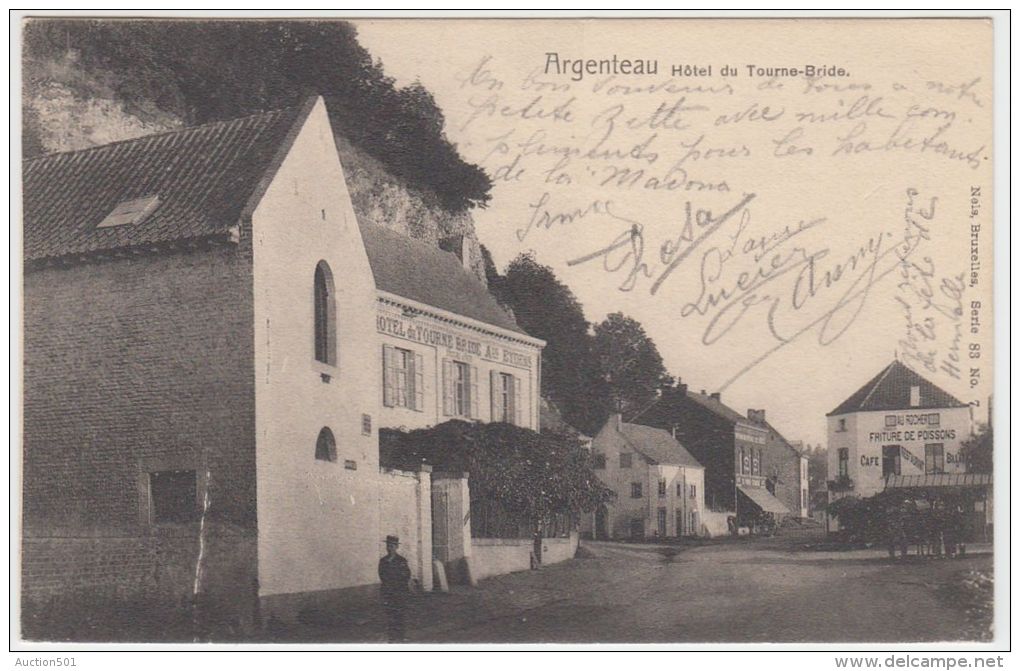 Argenteau Hôtel du Tourne-Bride.
En bon Souvenir de tous a notre
petite Bette avec mille com.
pliments pour les habetants
de la "Madona
Irma
Rosa
Lucien
Anny.
de la fête de
Nels, Bruxelles, Serie 83 No. 7
HOTEL du TOURNE BRIDE
AU ROCHER
FRITURE DE POISSONS
CAFE RESTAURANT
Auction501
http://www.delcampe.net